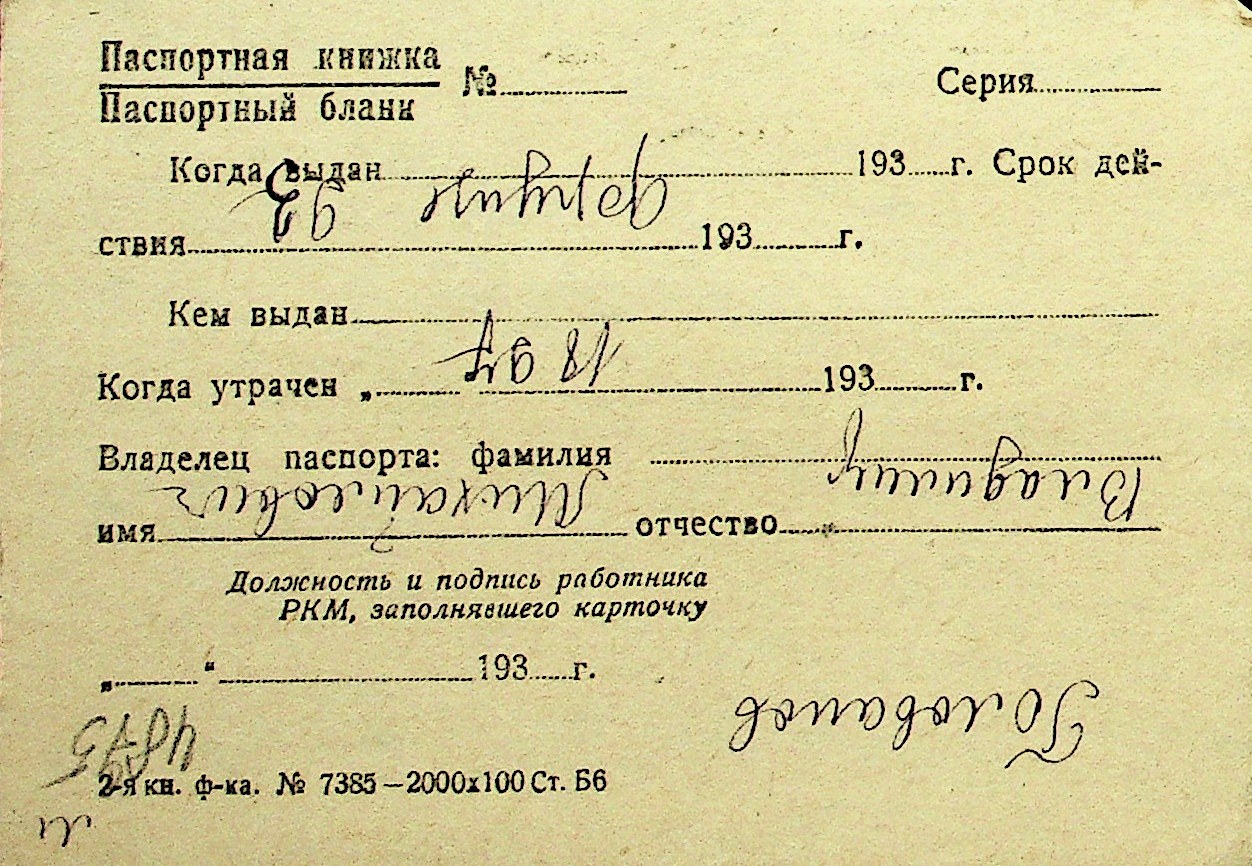 Паспортная книжка
Паспортный бланк
№ Серия
Когда выдан 193 г. Срок дей-
ствия 193 г.
Кем выдан
Когда утрачен „ 193 г.
Владелец паспорта: фамилия
имя отчество
Должность и подпись работника
РКМ, заполнявшего карточку
„ “ 193 г.
2-я кн. ф-ка. № 7385—2000х100 Ст. Б6
Голованов
Владимир
Михайлович
1897